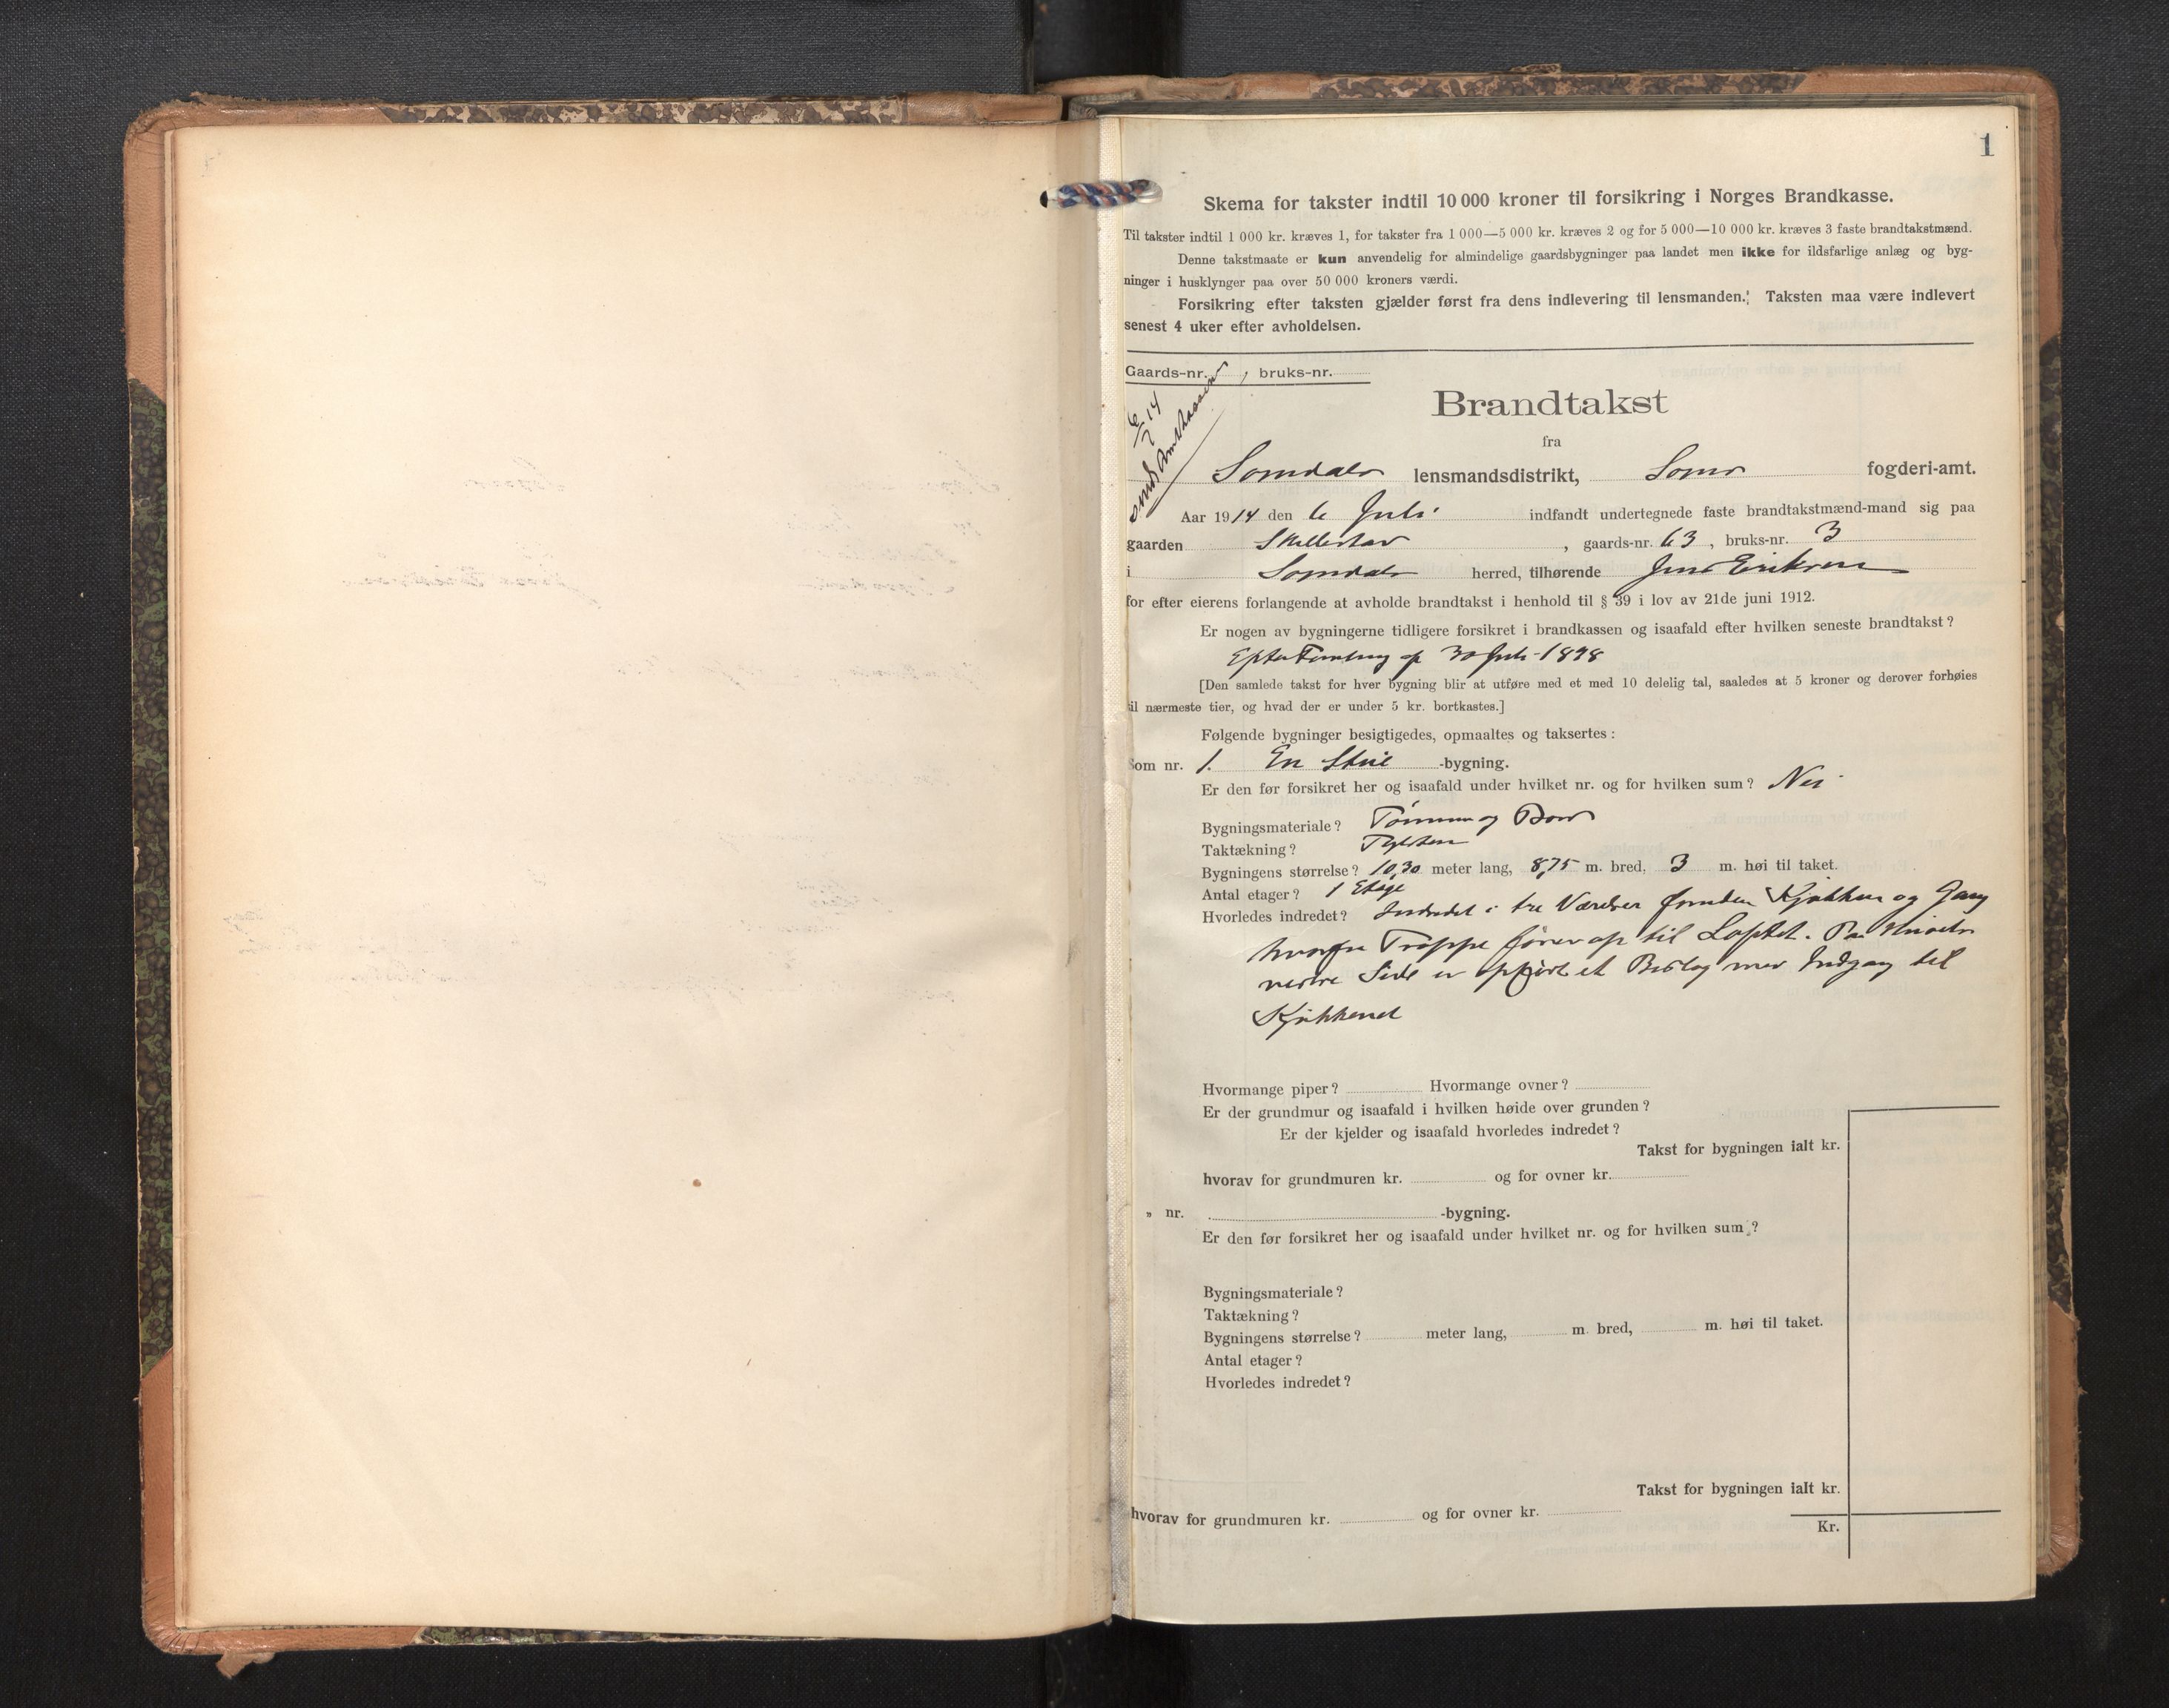 1
Skema for takster indtil 10 000 kroner til forsikring i Norges Brandkasse.
Til takster indtil 1 000 kr. kræves 1, for takster fra 1 000—5 000 kr. kræves 2 og for 5 000—10 000 kr. kræves 3 faste brandtakstmænd.
Denne takstmaate er kun anvendelig for almindelige gaardsbygninger paa landet men ikke for ildsfarlige anlæg og byg-
ninger i husklynger paa over 50 000 kroners værdi.
Forsikring efter taksten gjælder først fra dens indlevering til lensmanden. Taksten maa være indlevert
senest 4 uker efter avholdelsen.
Gaards-nr. , bruks-nr.
6/7 14
Brandtakst
fra
lensmandsdistrikt, fogderi-amt.
Aar 1914 den 6 Juli indfandt undertegnede faste brandtakstmænd-mand sig paa
gaarden , gaards-nr. 63, bruks-nr. 3
i herred, tilhørende Eriksen
for efter eierens forlangende at avholde brandtakst i henhold til § 39 i lov av 21de juni 1912.
Er nogen av bygningerne tidligere forsikret i brandkassen og isaafald efter hvilken seneste brandtakst?
30 Juli 1898
[Den samlede takst for hver bygning blir at utføre med et med 10 delelig tal, saaledes at 5 kroner og derover forhøies
til nærmeste tier, og hvad der er under 5 kr. bortkastes.]
Følgende bygninger besigtigedes, opmaaltes og taksertes:
Som nr. 1. En Stue -bygning.
Er den før forsikret her og isaafald under hvilket nr. og for hvilken sum? Nei
Bygningsmateriale? Tømmer og Bord
Taktækning? Teglsten
Bygningens størrelse? 10,30 meter lang, 8,75 m. bred, 3 m. høi til taket.
Antal etager? 1 Etage
Hvorledes indredet? Indredet i tre Værelser foruden Kjøkken og Gang
hvorfra Trappe fører op til Loftet. Paa Husets
vestre Side er opført et Bislag med Indgang til
Kjøkkenet
Hvormange piper? Hvormange ovner?
Er der grundmur og isaafald i hvilken høide over grunden?
Er der kjelder og isaafald hvorledes indredet?
Takst for bygningen ialt kr.
hvorav for grundmuren kr. og for ovner kr.
„ nr. -bygning.
Er den før forsikret her og isaafald under hvilket nr. og for hvilken sum?
Bygningsmateriale?
Taktækning?
Bygningens størrelse? meter lang, m. bred, m. høi til taket.
Antal etager?
Hvorledes indredet?
Takst for bygningen ialt kr.
hvorav for grundmuren kr. og for ovner kr.
Kr.